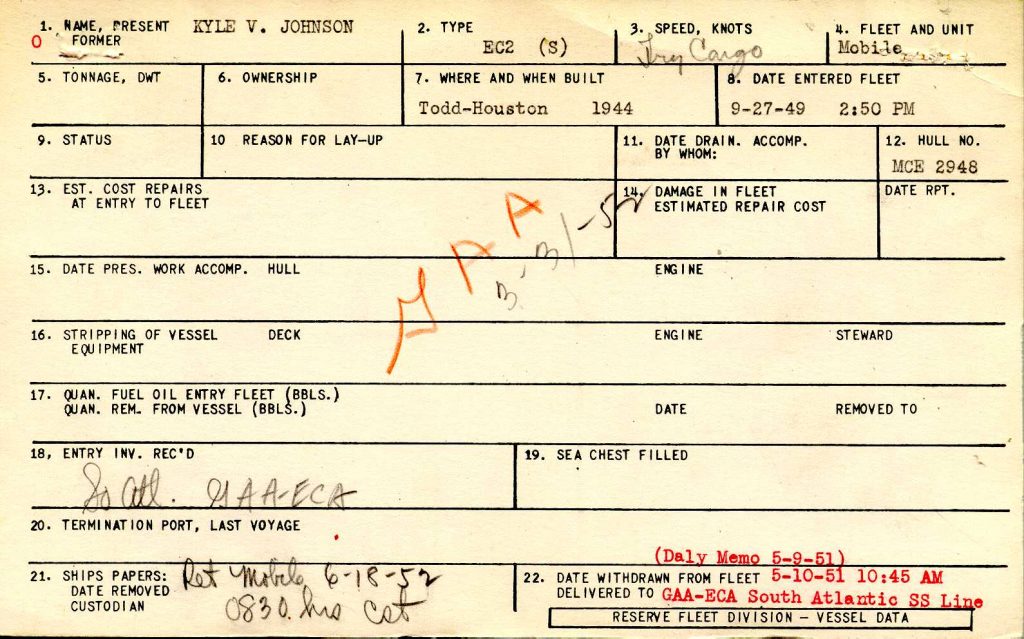 1. NAME, PRESENT KYLE V. JOHNSON
O FORMER
2. TYPE
EC2 (S)
3. SPEED, KNOTS
Dry Cargo
4. FLEET AND UNIT
Mobile
5. TONNAGE, DWT
6. OWNERSHIP
7. WHERE AND WHEN BUILT
Todd-Houston 1944
8. DATE ENTERED FLEET
9-27-49 2:50 PM
9. STATUS
10 REASON FOR LAY-UP
11. DATE DRAIN. ACCOMP.
BY WHOM:
12. HULL NO.
MCE 2948
13. EST. COST REPAIRS
AT ENTRY TO FLEET
14. DAMAGE IN FLEET
ESTIMATED REPAIR COST
DATE RPT.
GAA
3-31-52
15. DATE PRES. WORK ACCOMP. HULL ENGINE
16. STRIPPING OF VESSEL DECK ENGINE STEWARD
EQUIPMENT
17. QUAN. FUEL OIL ENTRY FLEET (BBLS.)
QUAN. REM. FROM VESSEL (BBLS.) DATE REMOVED TO
18, ENTRY INV. REC'D
So Atl. GAA-ECA
19. SEA CHEST FILLED
20. TERMINATION PORT, LAST VOYAGE
21. SHIPS PAPERS: Ret Mobile 6-18-52
DATE REMOVED 0830 hrs cst
CUSTODIAN
(Daly Memo 5-9-51)
22. DATE WITHDRAWN FROM FLEET 5-10-51 10:45 AM
DELIVERED TO GAA-ECA South Atlantic SS Line
RESERVE FLEET DIVISION – VESSEL DATA